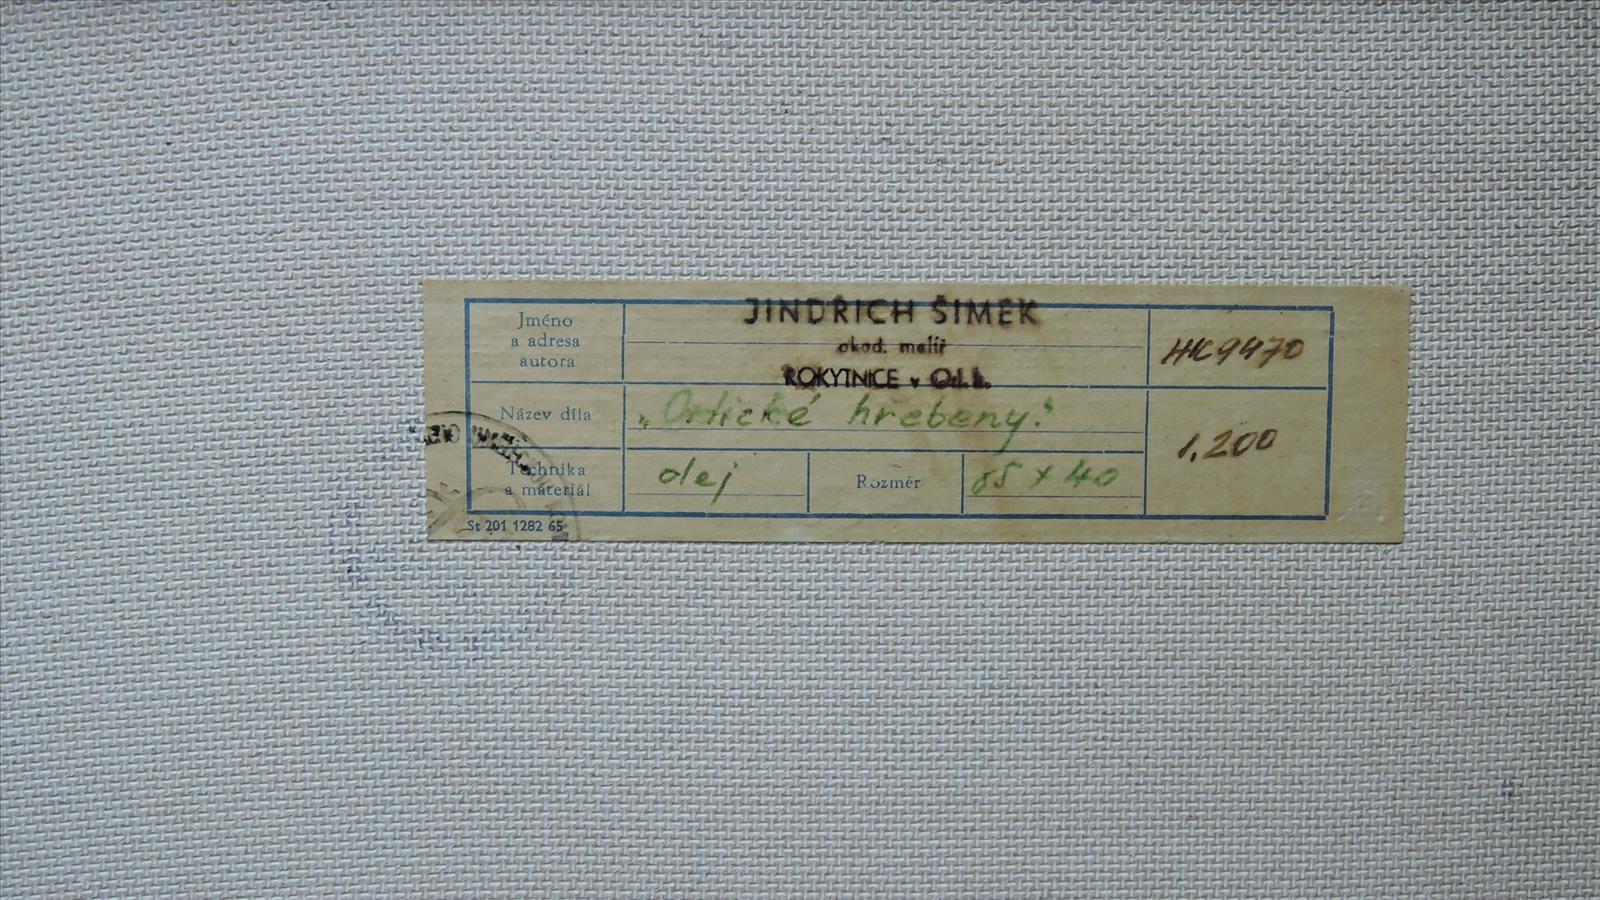 JINDŘICH ŠIMEK
Jméno
a adresa
autora
akad. malíř
ROKYTNICE v Orl. h.
HK 9470
Název díla
„Orlické hřebeny."
Technika
a materiál
olej
Rozměr
85 x 40
1.200
St 201 1282 65